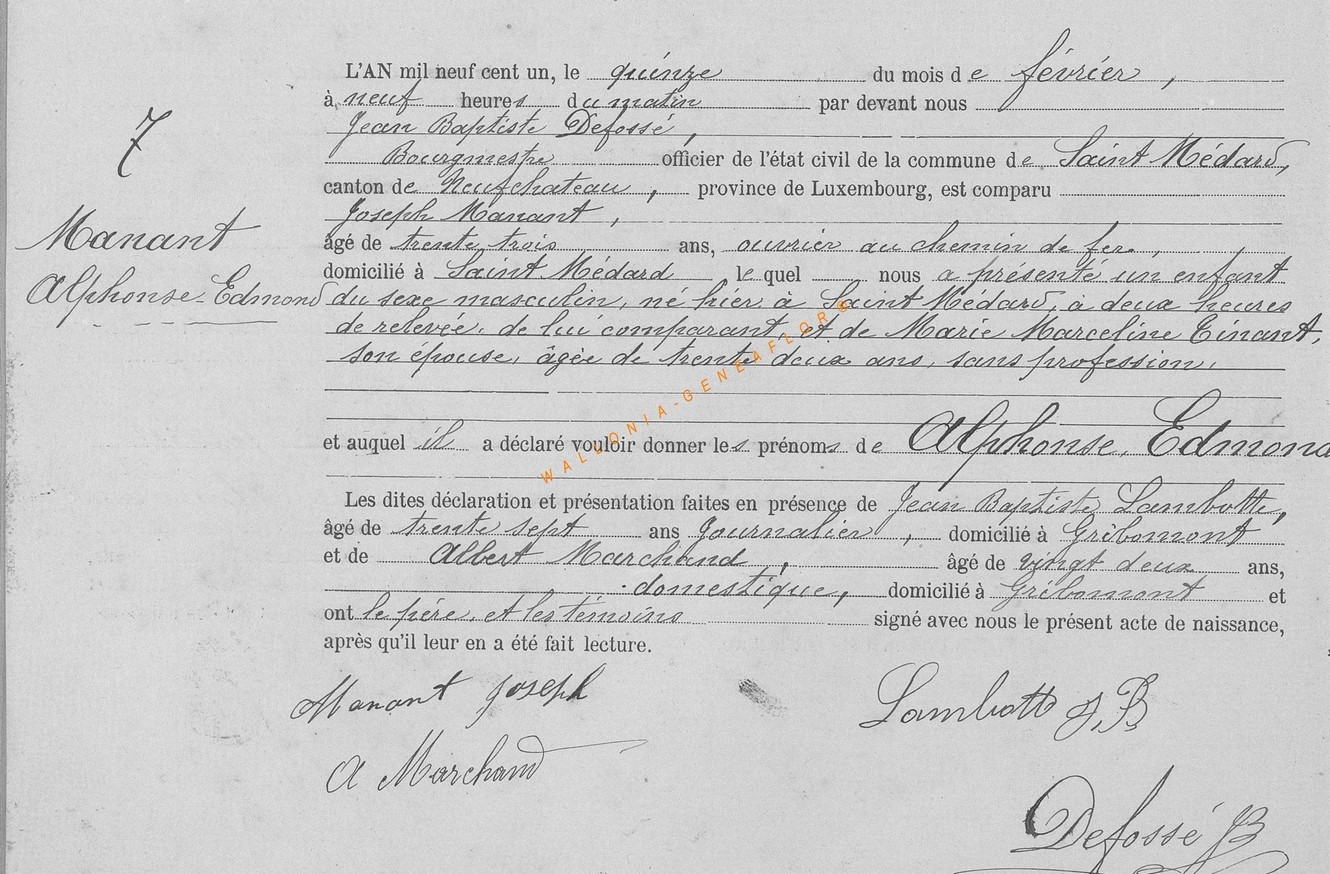 7
Manant
Alphonse-Edmond
L'AN mil neuf cent un, le quinze du mois de février,
à neuf heures du matin par devant nous
Jean Baptiste Defossé,
Bourgmestre officier de l'état civil de la commune de Saint Médard,
canton de Neufchateau, province de Luxembourg, est comparu
Joseph Manant,
âgé de trente trois ans, ouvrier au chemin de fer,
domicilié à Saint Médard, lequel nous a présenté un enfant
du sexe masculin, né hier à Saint Médard, à deux heures
de relevée, de lui comparant, et de Marie Marceline Tinant,
son épouse, âgée de trente deux ans, sans profession,
et auquel il a déclaré vouloir donner les prénoms de Alphonse, Edmond
Les dites déclaration et présentation faites en présence de Jean Baptiste Lambotte,
âgé de trente sept ans journalier, domicilié à Gribomont
et de Albert Marchand, âgé de vingt deux ans,
domestique, domicilié à Gribomont et
ont le père, et les témoins signé avec nous le présent acte de naissance,
après qu'il leur en a été fait lecture.
Manant Joseph
Lambotte J,B
A Marchand
Defossé JB
WALLONIA-GENEAFLOR©